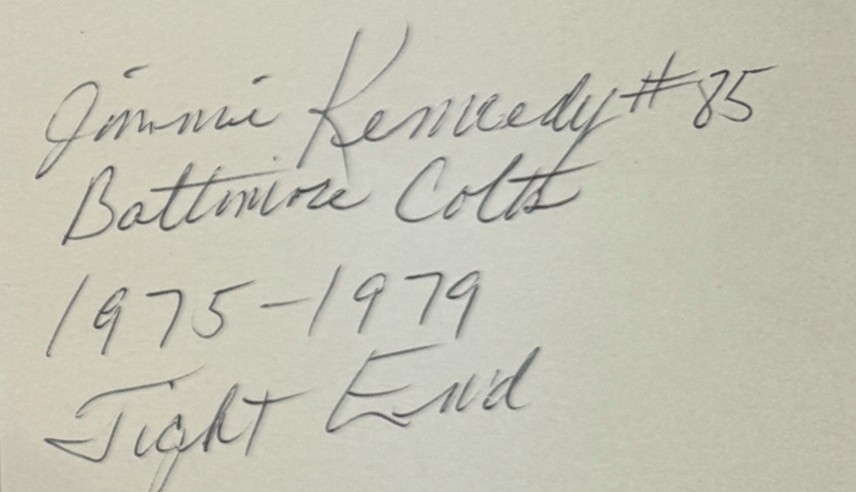 Jimmie Kennedy #85
Baltimore Colts
1975-1979
Tight End